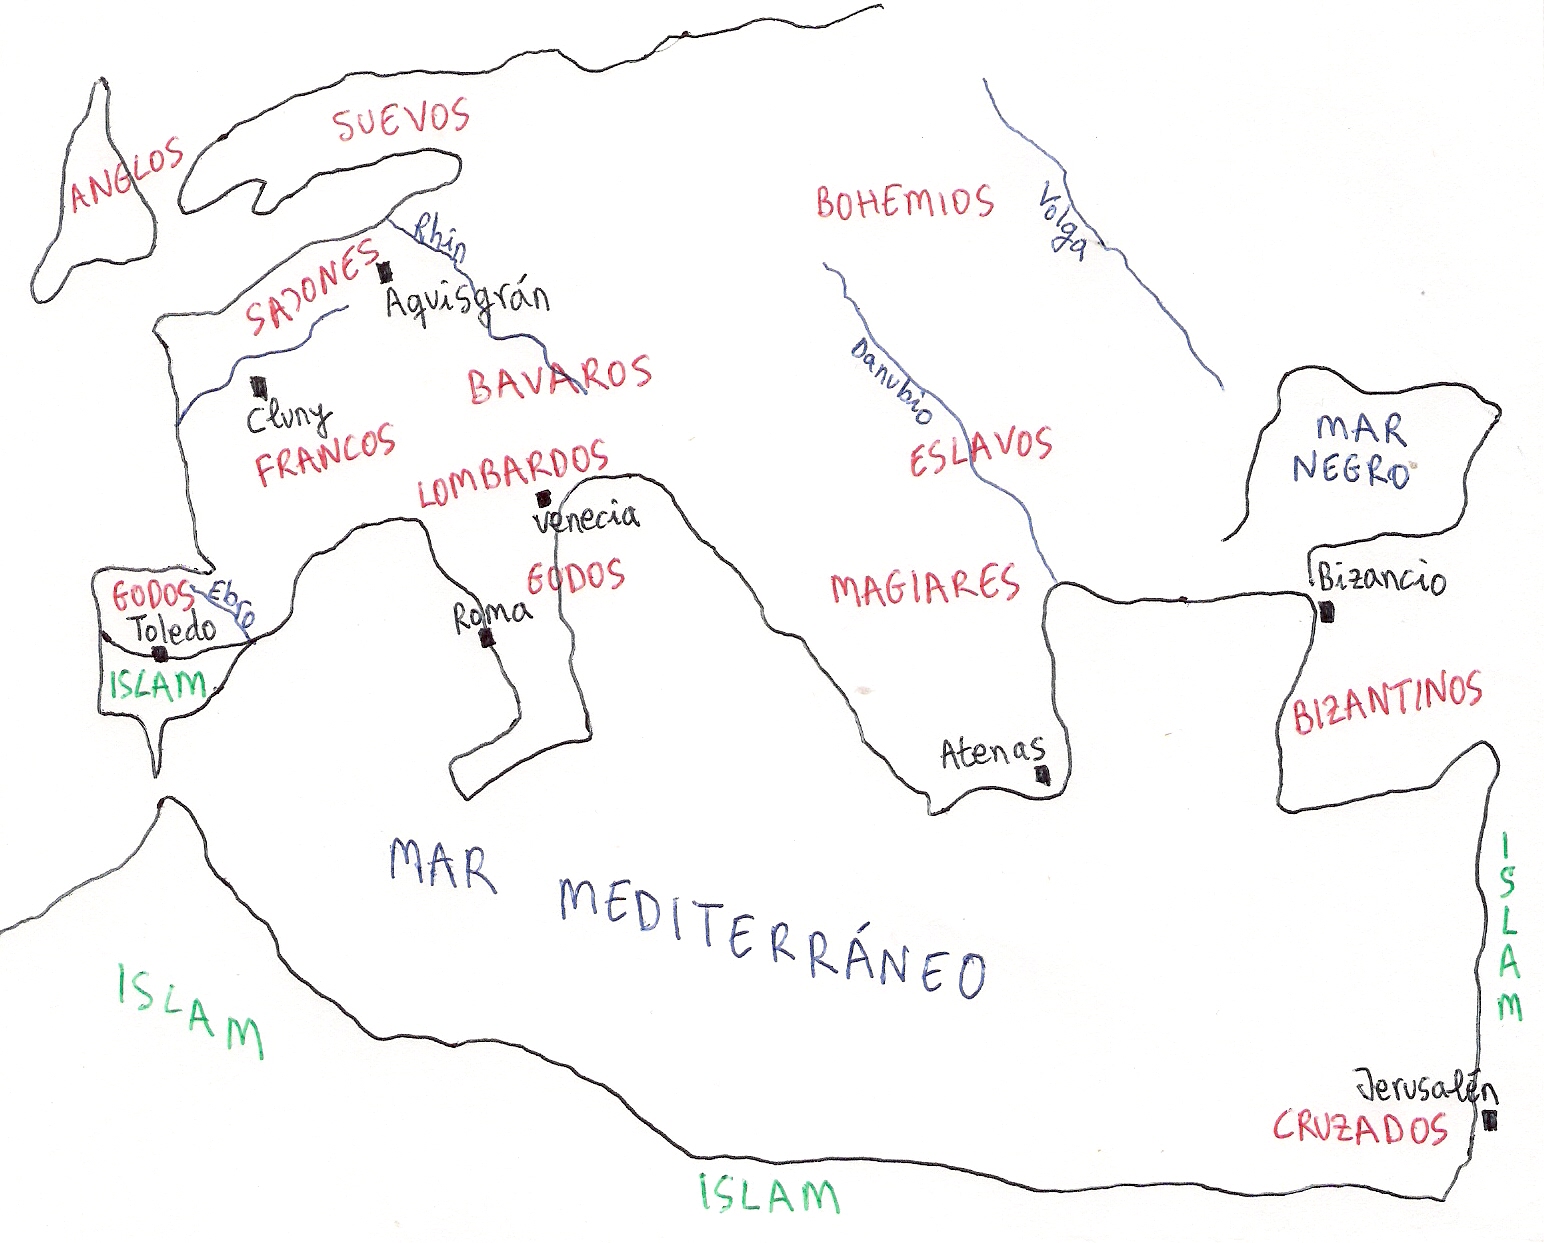 SUEVOS
ANGLOS
BOHEMIOS
Volga
Rhin
SAJONES
Aquisgrán
Danubio
BAVAROS
Cluny
FRANCOS
MAR
NEGRO
ESLAVOS
LOMBARDOS
Venecia
GODOS
Ebro
Toledo
ISLAM
GODOS
Roma
MAGIARES
Bizancio
BIZANTINOS
Atenas
MAR MEDITERRÁNEO
ISLAM
ISLAM
Jerusalén
CRUZADOS
ISLAM